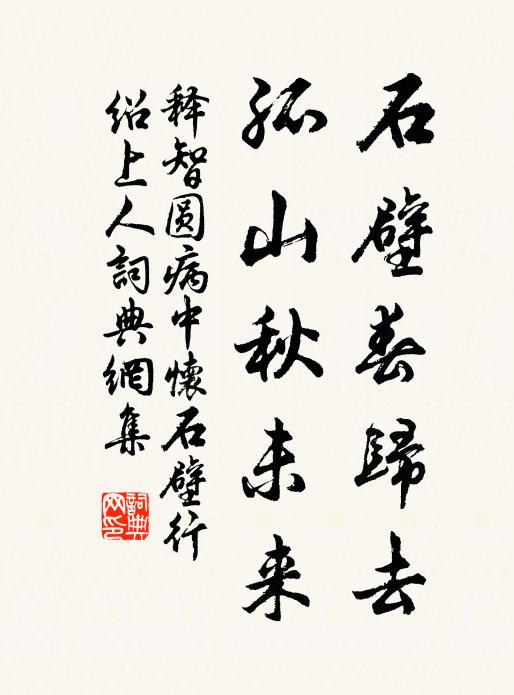 石壁春歸去
孤山秋未来
释智圆病中懷石壁行
绍上人詞典網集
詞典
网印